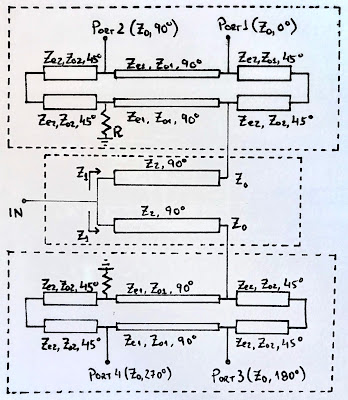 Port 2 (Z0, 90°) Port 1 (Z0, 0°)
Ze2, Z02, 45° Ze1, Z01, 90° Ze2, Z02, 45°
Ze2, Z02, 45° R Ze1, Z01, 90° Ze2, Z02, 45°
Z2, 90°
Z1 Z0
IN
Z2, 90°
Z1 Z0
Ze2, Z02, 45° Ze1, Z01, 90° Ze2, Z02, 45°
Ze2, Z02, 45° Ze1, Z01, 90° Ze2, Z02, 45°
Port 4 (Z0, 270°) Port 3 (Z0, 180°)